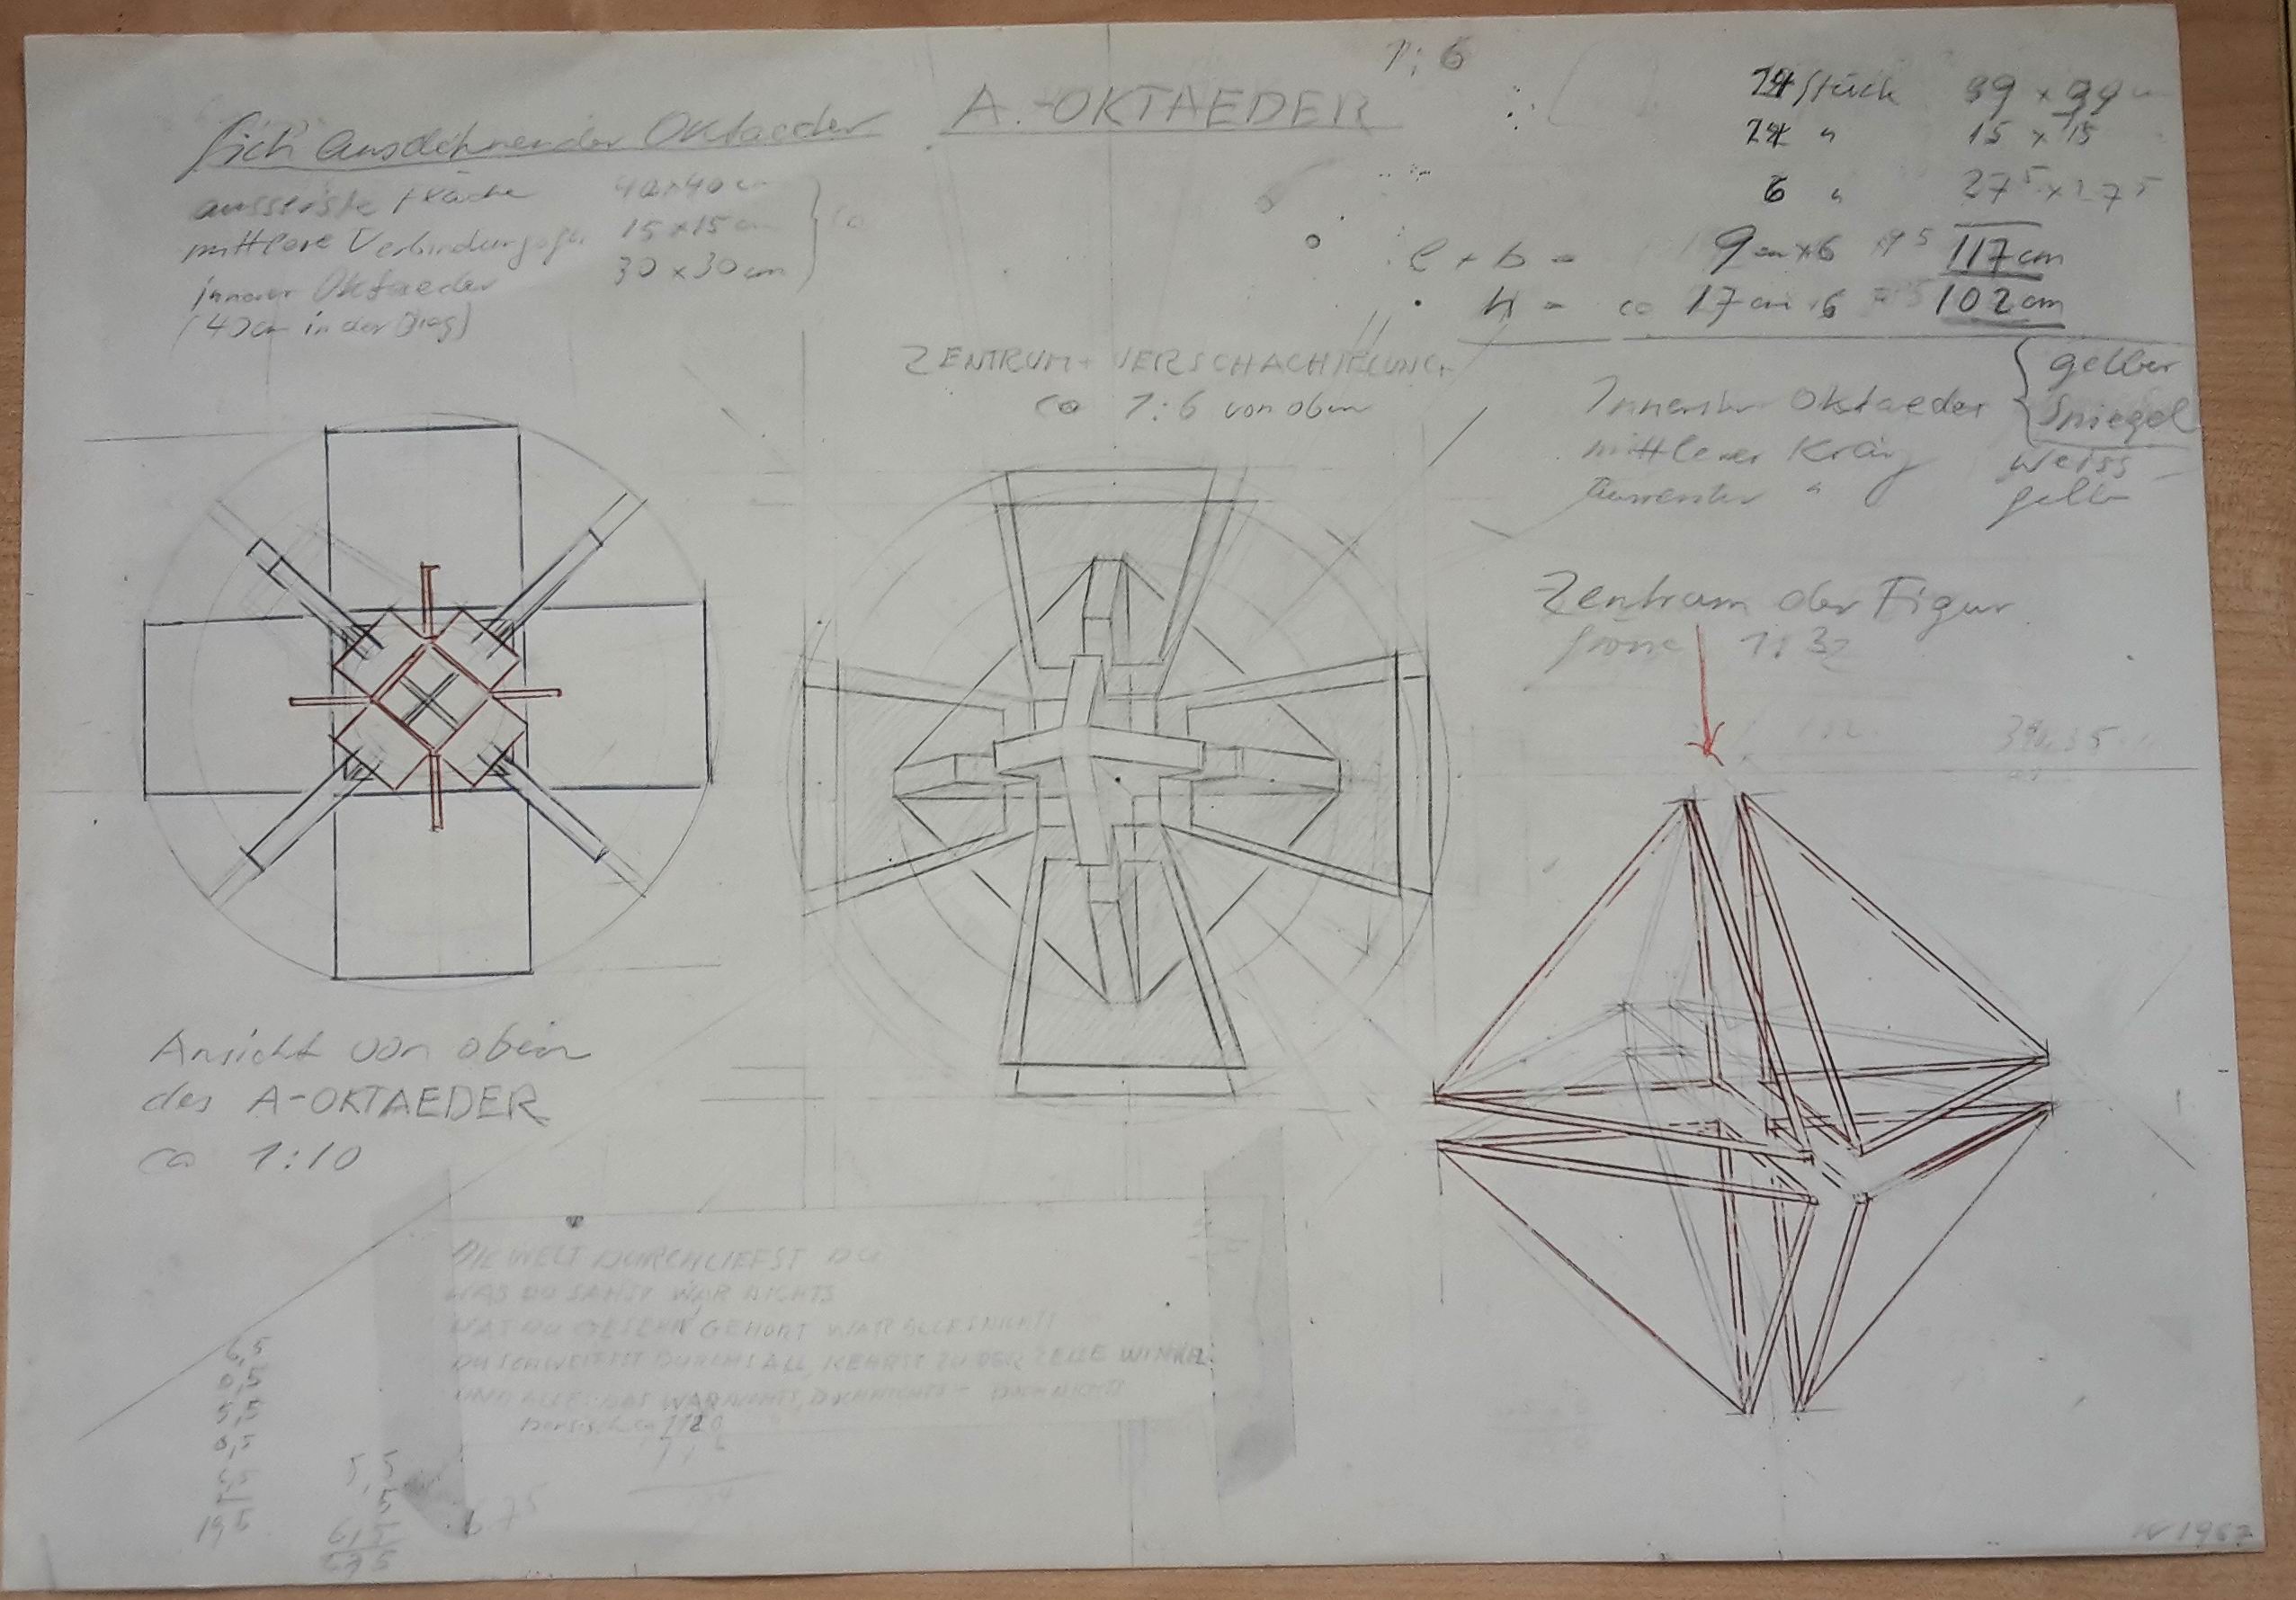 1:6
A.-OKTAEDER
Sich ausdehnender Oktaeder
ausserste Fläche 40x40 cm
mittlere Verbindungsfl. 15x15 cm
innerer Oktaeder 30x30 cm
(40cm in der Diag)
Stück 39 x 39
" 15 x 15
6 " 27⁵ x 27⁵
l + b = 9 cm x 6 117 cm
H = ca 17 cm 6 102 cm
ZENTRUM + VERSCHACHTELUNG
ca 1:6 von oben
Innerster Oktaeder { gelber
Spiegel
mittlerer weiss
Äusserster " gelb
Zentrum der Figur
1:3
Ansicht von oben
des A-OKTAEDER
ca 1:10
DIE WELT DURCHLIEFST DU
WAS DU SAHST WAR NICHTS
WAS DU GESEHN GEHÖRT WAR ALLES NICHTS
DU SCHWEIFTEST DURCHS ALL, KEHRST ZU DER ZELLE WINKEL
UND ALLES DAS WAR NICHTS, NICHTS
Persisch ca
6,5
0,5
5,5
0,5
6,5
19,5
5,5
5
6,5
6.75
1967